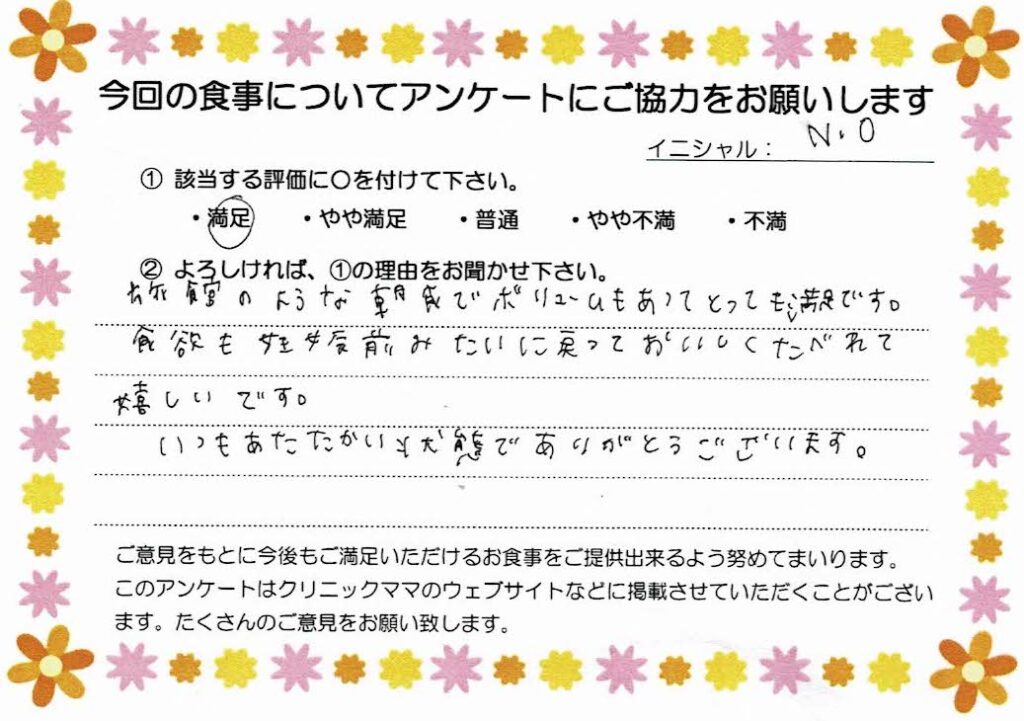 今回の食事についてアンケートにご協力をお願いします
イニシャル： N.O
① 該当する評価に〇を付けて下さい。
・満足 ・やや満足 ・普通 ・やや不満 ・不満
② よろしければ、①の理由をお聞かせ下さい。
旅館のような朝食でボリュームもあってとっても満足です。
食欲も妊娠前みたいに戻っておいしくたべれて
嬉しいです。
いつもあたたかい状態でありがとうございます。
ご意見をもとに今後もご満足いただけるお食事をご提供出来るよう努めてまいります。
このアンケートはクリニックママのウェブサイトなどに掲載させていただくことがござい
ます。たくさんのご意見をお願い致します。